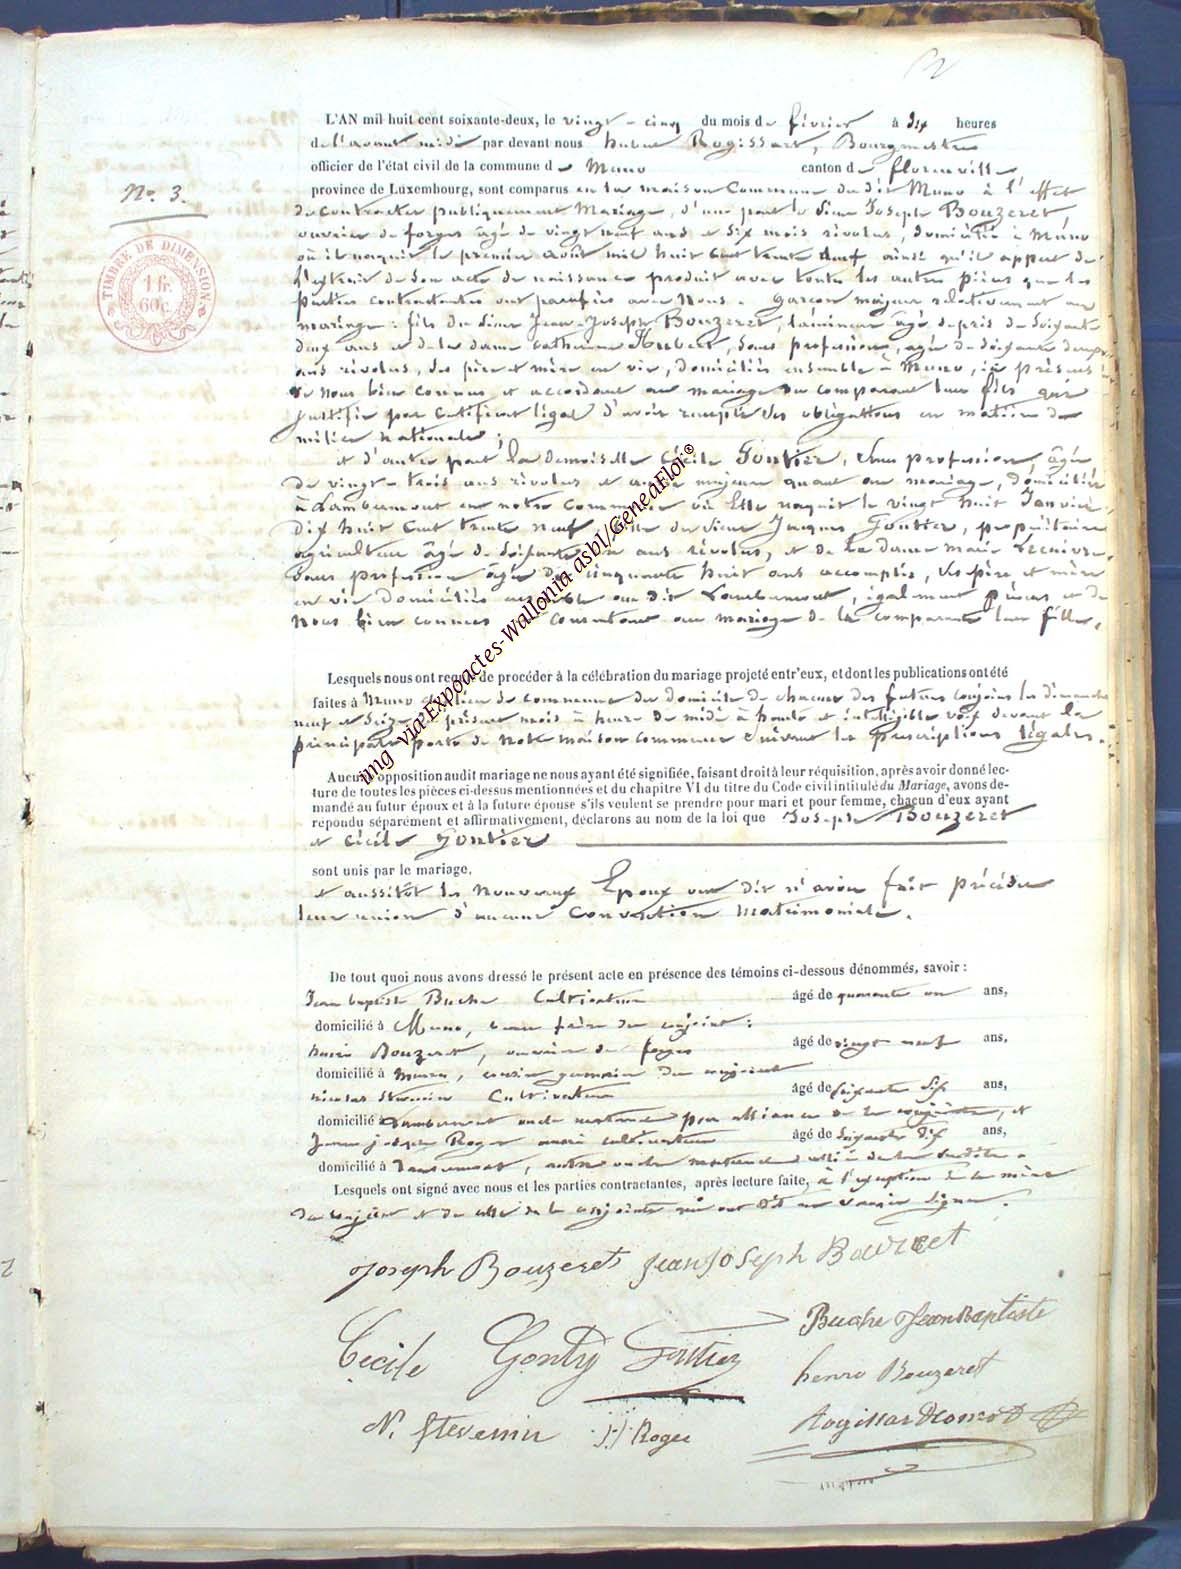 2
L'AN mil huit cent soixante-deux, le vingt-cinq du mois de février à dix heures
de l'avant midi par devant nous Rogissart, Bourgmestre
officier de l'état civil de la commune de Muno canton de florenville
province de Luxembourg, sont comparus en la maison Commune du dit Muno à l'effet
No. 3.
de contracter publiquement Mariage, d'une part le sieur Joseph Bouzeret,
ouvrier de forges âgé de vingt neuf ans et six mois révolus, domicilié à Muno
TIMBRE DE DIMENSION
1 fr. 60c.
où il naquit le premier août mil huit cent trente deux ainsi qu'il appert de
l'extrait de son acte de naissance produit avec toutes les autres pièces que les
parties contractantes ont paraphées avec Nous. Garçon majeur relativement au
mariage: fils du sieur Jean-Joseph Bouzeret, âgé de près de soixante
deux ans et de la dame Catherine Hubert, sans profession, âgée de soixante
ans révolus, ses père et mère en vie, domiciliés ensemble à Muno, ici présents
de Nous bien connus et accordant au mariage du comparant leur fils qui
justifie par certificat légal d'avoir rempli ses obligations en matière de
milice nationale;
et d'autre part, la demoiselle Cécile Gontier, sans profession, âgée
de vingt-trois ans révolus et aussi majeure quant au mariage, domiciliée
à Lambermont en notre commune où Elle naquit le vingt huit Janvier
dix huit cent trente neuf, fille du sieur Jacques Gontier, propriétaire
agriculteur âgé de soixante ans révolus, et de la dame Marie
sans profession âgée de cinquante huit ans accomplis, ses père et mère
en vie domiciliés ensemble au dit Lambermont, également présents et de
Nous bien connus consentant au mariage de la comparante leur fille.
Lesquels nous ont requis de procéder à la célébration du mariage projeté entr'eux, et dont les publications ont été
faites à Muno de commune du domicile de chacun des futurs conjoints les dimanches
neuf et seize présent mois à heure de midi à haute et intelligible voix devant la
principale porte de notre maison commune suivant les prescriptions légales.
Aucune opposition audit mariage ne nous ayant été signifiée, faisant droit à leur réquisition, après avoir donné lec-
ture de toutes les pièces ci-dessus mentionnées et du chapitre VI du titre du Code civil intitulé du Mariage, avons de-
mandé au futur époux et à la future épouse s'ils veulent se prendre pour mari et pour femme, chacun d'eux ayant
répondu séparément et affirmativement, déclarons au nom de la loi que Joseph Bouzeret
et Cécile Gontier
sont unis par le mariage,
et aussitôt les nouveaux Epoux ont dit n'avoir fait précéder
leur union d'aucune convention matrimoniale.
De tout quoi nous avons dressé le présent acte en présence des témoins ci-dessous dénommés, savoir:
Jean baptiste Buche Cultivateur âgé de quarante un ans,
domicilié à Muno, beau frère du conjoint:
henri Bouzeret, ouvrier de forges âgé de vingt neuf ans,
domicilié à Muno, cousin germain du conjoint
nicolas Stevenin Cultivateur âgé de soixante six ans,
domicilié à Lambermont oncle maternel par alliance de la conjointe, et
Jean joseph Roger aussi cultivateur âgé de soixante dix ans,
domicilié à Lambermont, autre oncle maternel allié de la susdite.
Lesquels ont signé avec nous et les parties contractantes, après lecture faite, à l'exception de la mère
du conjoint et de celle de la conjointe qui ont dit ne savoir signer.
Joseph Bouzeret JeanJoseph Bouzeret
Buche Jean Baptiste
Cécile Gonty Gontier
henri Bouzeret
N. Stevenin J:J: Roger
img via Expoactes-Wallonia asbl/GeneaFloi©